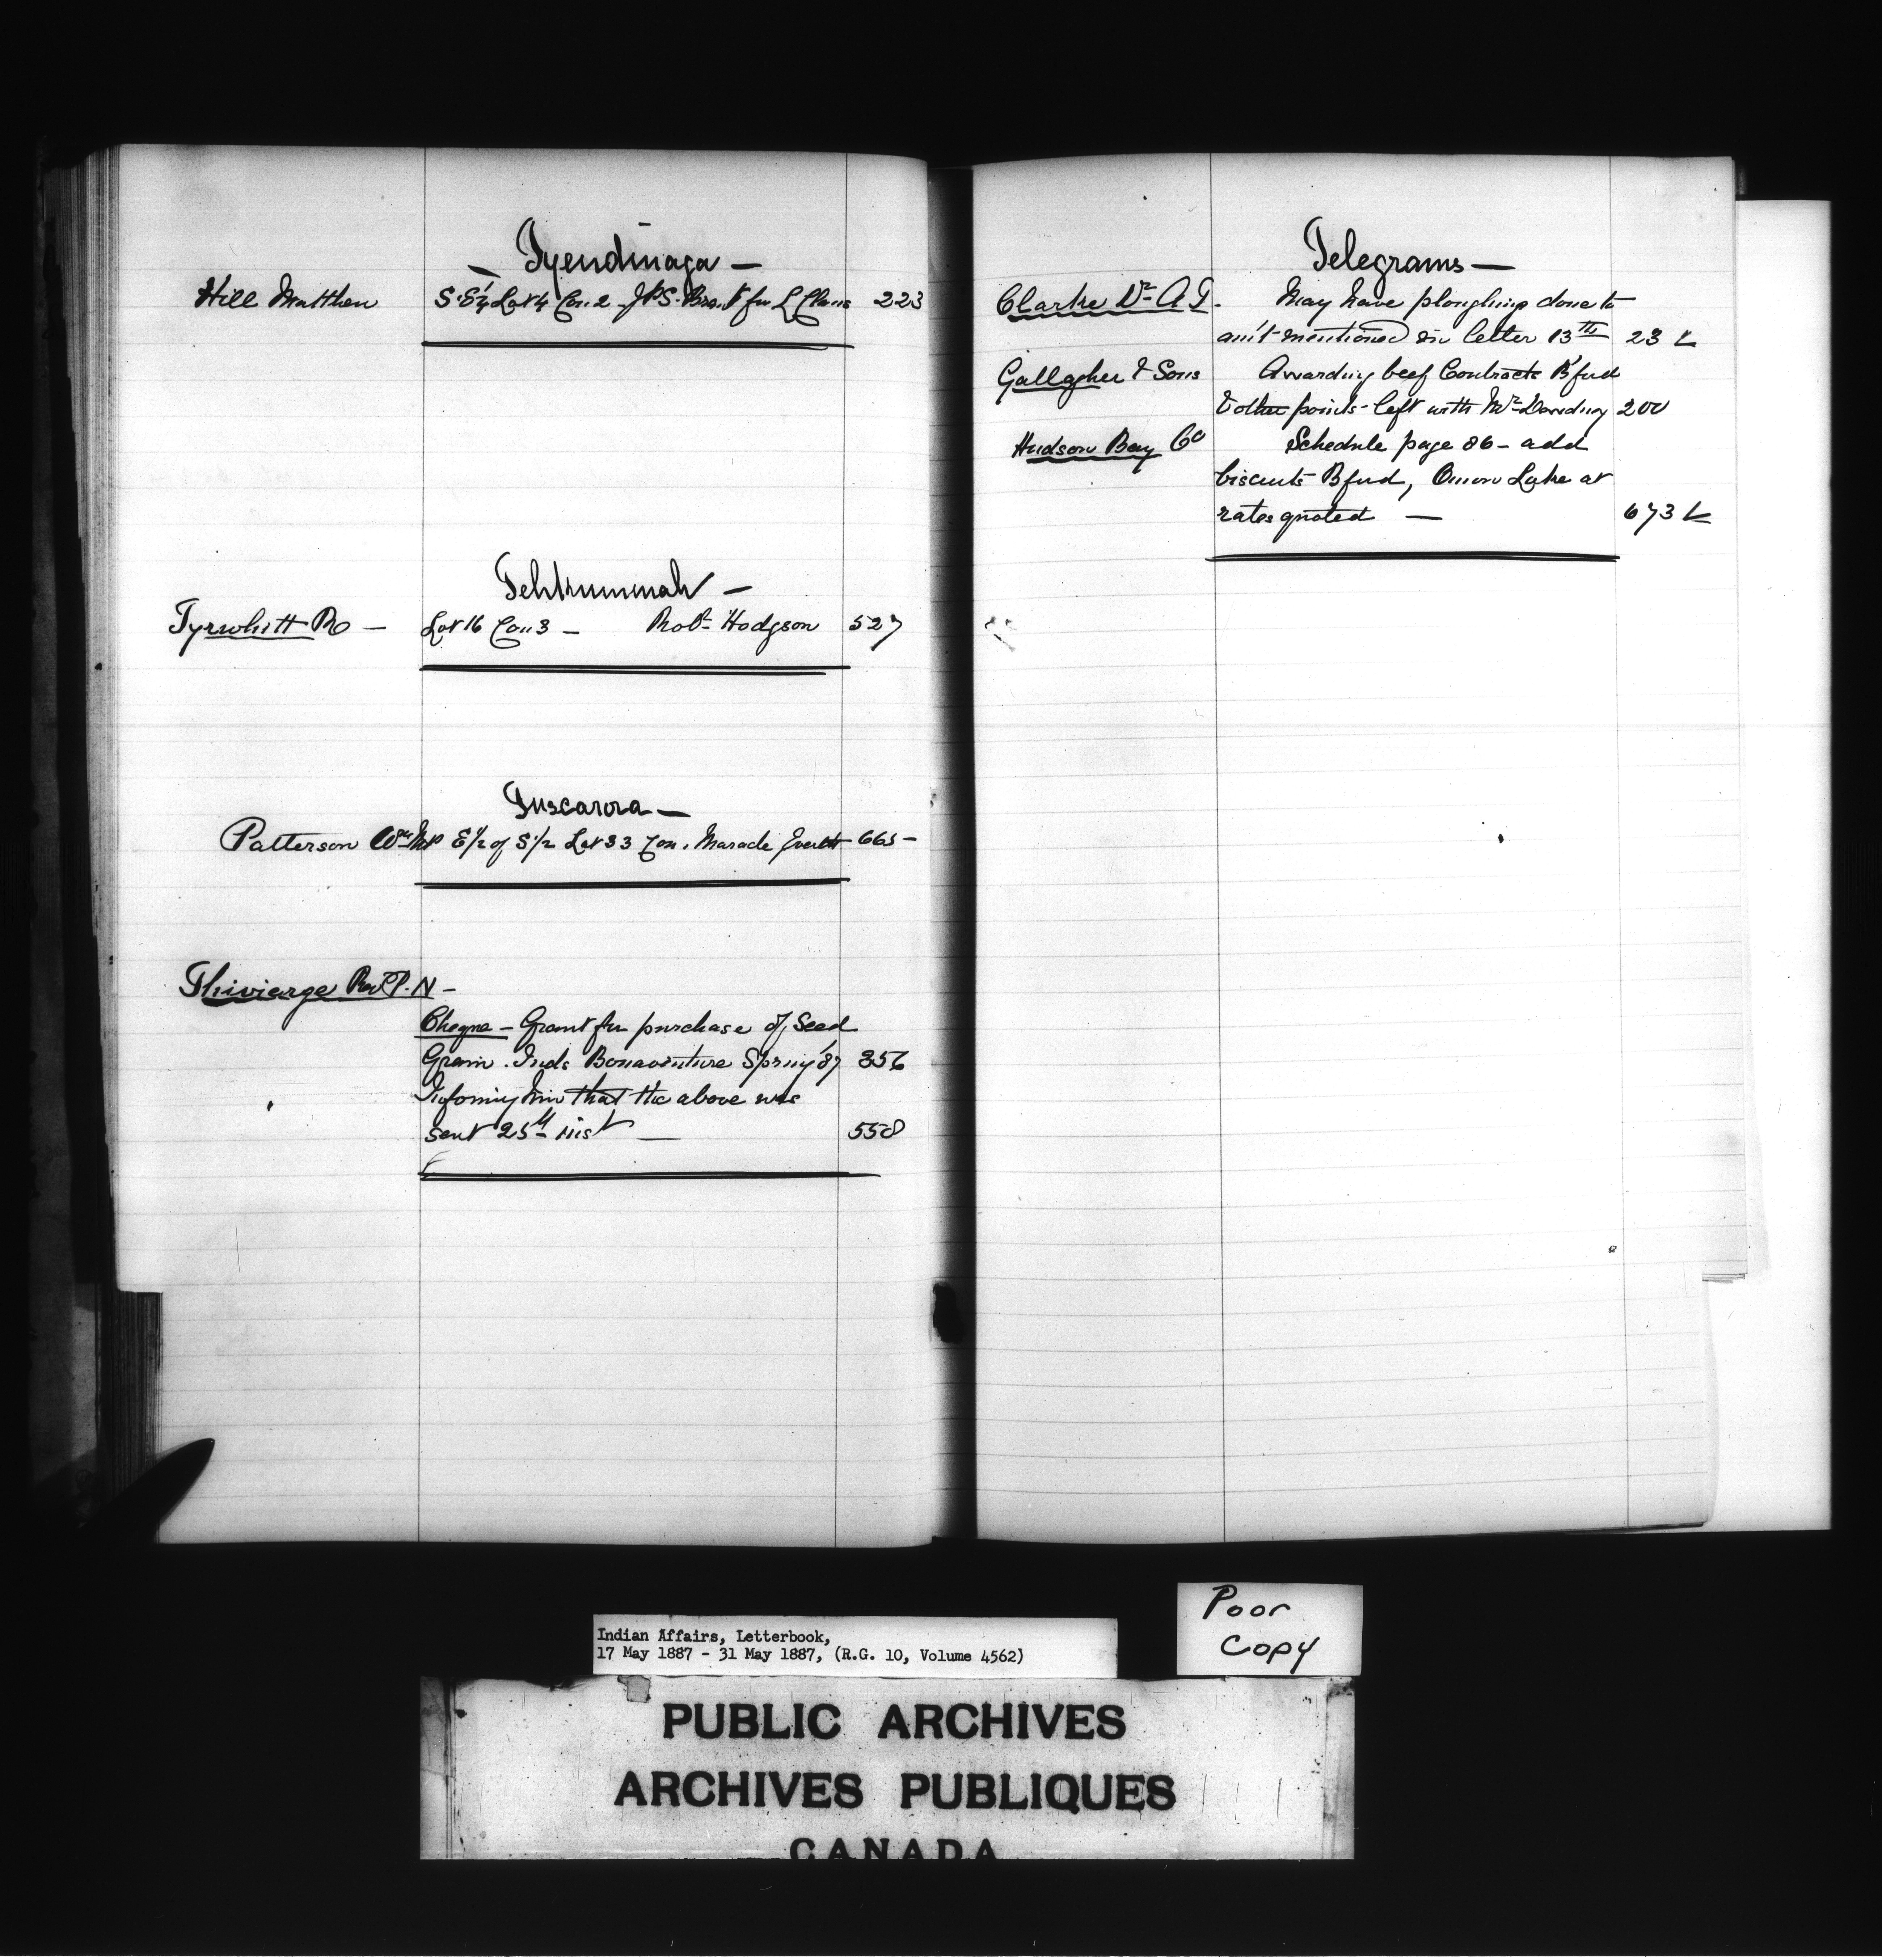 Tyendinaga —
Hill Matthew S.E¼ Lot 4 Con. 2 J.P.S. Brant for L Claus 223
Tehkummah —
Tyrwhitt R — Lot 16 Con 3 — Robt Hodgson 527
Tuscarora —
Patterson Wm MP E½ of S½ Lot 33 Con. Maracle 665 —
Thivierge Rev P. N —
Cheque — Grant for purchase of Seed
Grain. Inds Bonaventure Spring '87 356
Informing him that the above was
sent 25th inst — 558
Telegrams —
Clarke Dr A. I. May have ploughing done to
am't mentioned in letter 13th 23
Gallagher & Sons Awarding beef Contracts B'ford
& other points - left with Mr Dewdney 200
Hudson Bay Co Schedule page 86 — add
biscuits Bford, Onion Lake at
rates quoted — 673
Poor
Copy
Indian Affairs, Letterbook,
17 May 1887 - 31 May 1887, (R.G. 10, Volume 4562)
PUBLIC ARCHIVES
ARCHIVES PUBLIQUES
CANADA